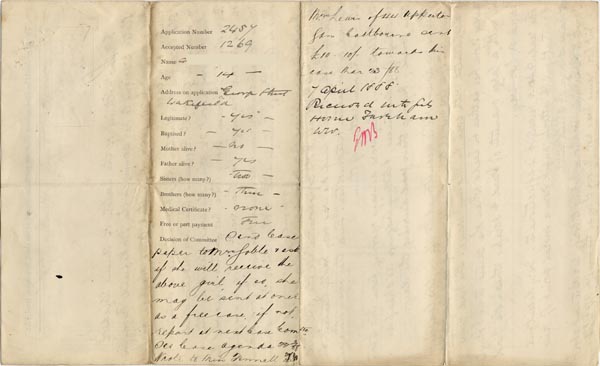 Application Number 2487
Accepted Number 1269
Name
Age - 14 -
Address on application George Street
Wakefield
Legitimate? - Yes -
Baptised? - Yes -
Mother alive? - No -
Father alive? - Yes
Sisters (how many?) Two -
Brothers (how many?) - Three -
Medical Certificate? - none -
Free or part payment Free
Decision of Committee Send case
paper to Mrs Goble & ask
if she will receive the
above girl, if so, she
may be sent at once
as a free case, if not
report at next Case Comtte
See Case agenda
Eastbourne sent
£10 towards
case
7 April 1888
Received into
Home Fareham
EMB